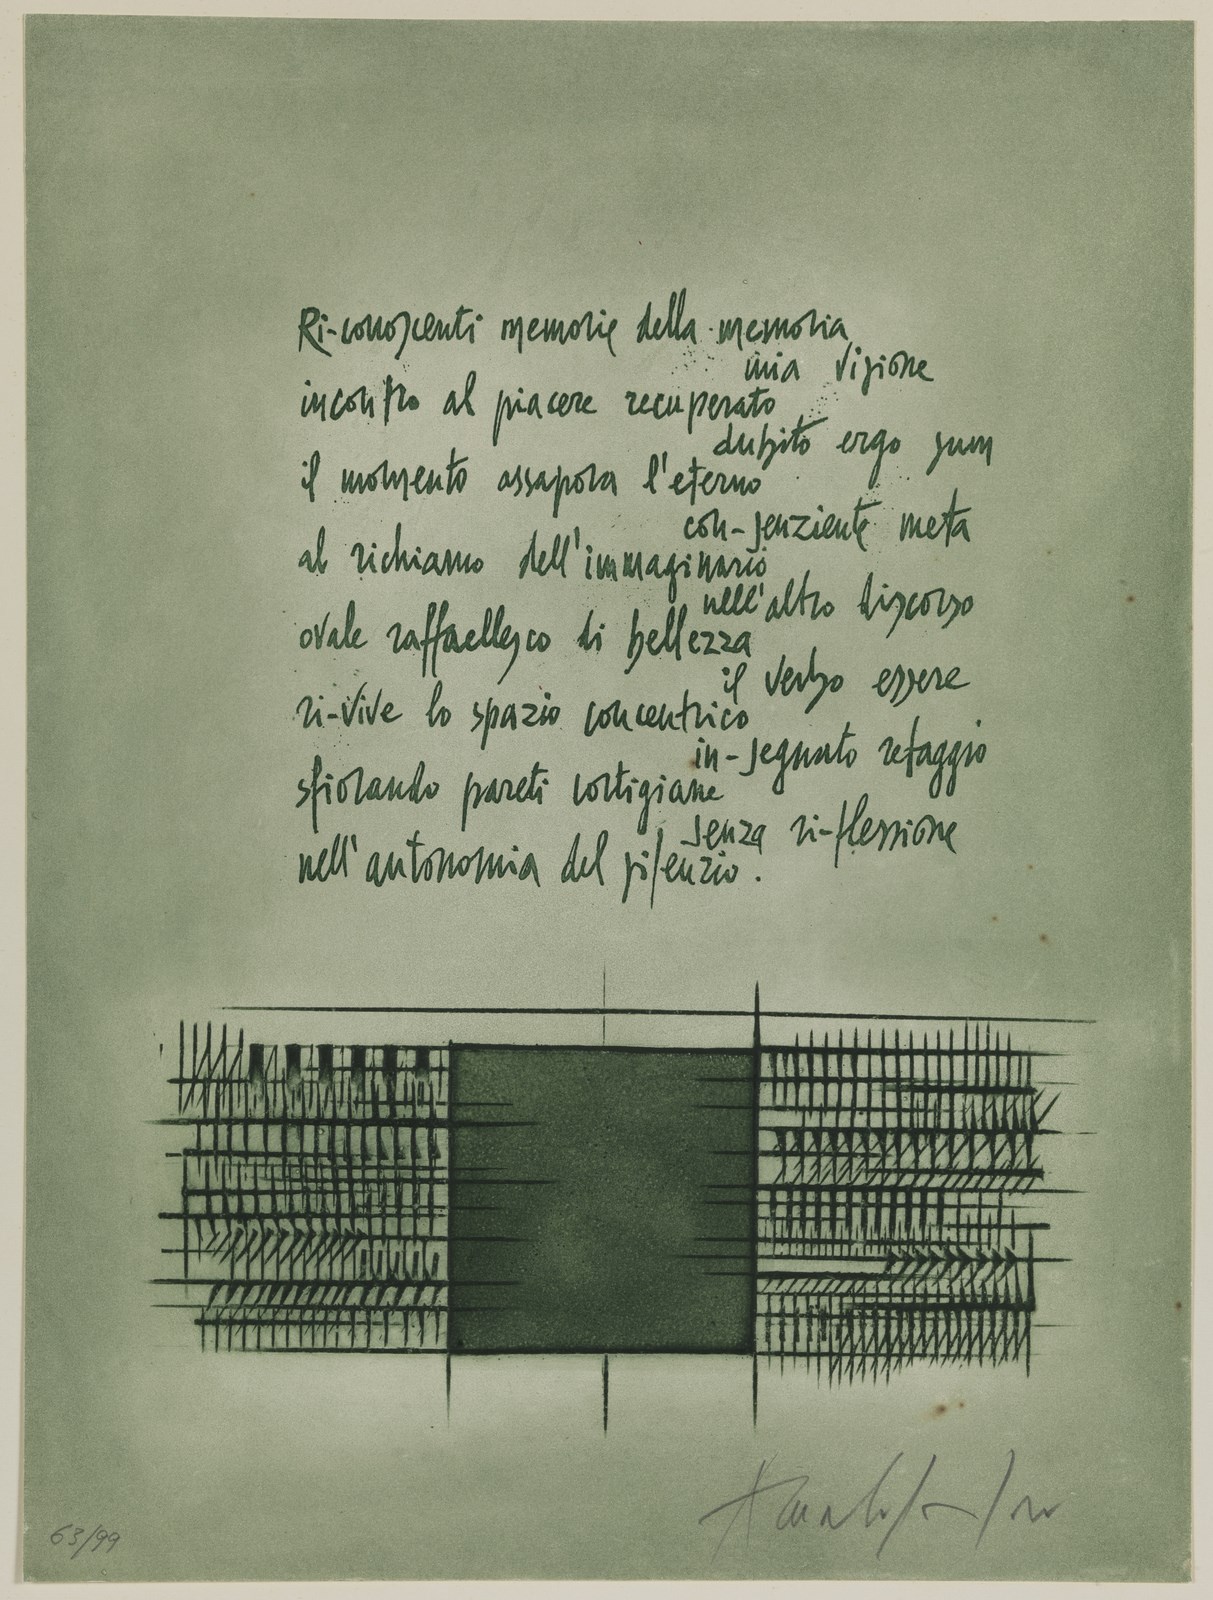 Ri-conoscenti memorie della memoria
mia visione
incontro al piacere recuperato
dubito ergo sum
il momento assapora l'eterno
con-senziente meta
al richiamo dell'immaginario
nell'altro discorso
ovale raffaellesco di bellezza
il verbo essere
ri-vive lo spazio concentrico
in-segnato retaggio
sfiorando pareti cortigiane
senza ri-flessione
nell'autonomia del silenzio.
63/99